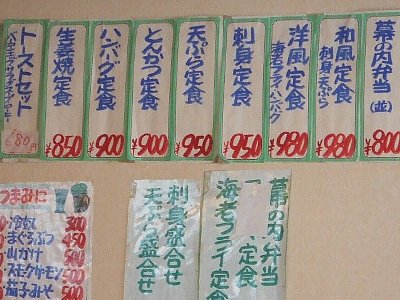 幕の内弁当(並)
¥800
和風定食
刺身、天ぷら
¥980
洋風定食
海老フライ、ハンバーグ
¥980
刺身定食
¥950
天ぷら定食
¥950
とんかつ定食
¥900
ハンバーグ定食
¥900
生姜焼定食
¥850
トーストセット
680円
幕の内弁当
定食
海老フライ定食
刺身盛合せ
天ぷら盛合せ
つまみに
冷奴 300
まぐろぶつ 450
山かけ 500
スモークサーモン 500
茄子みそ 500